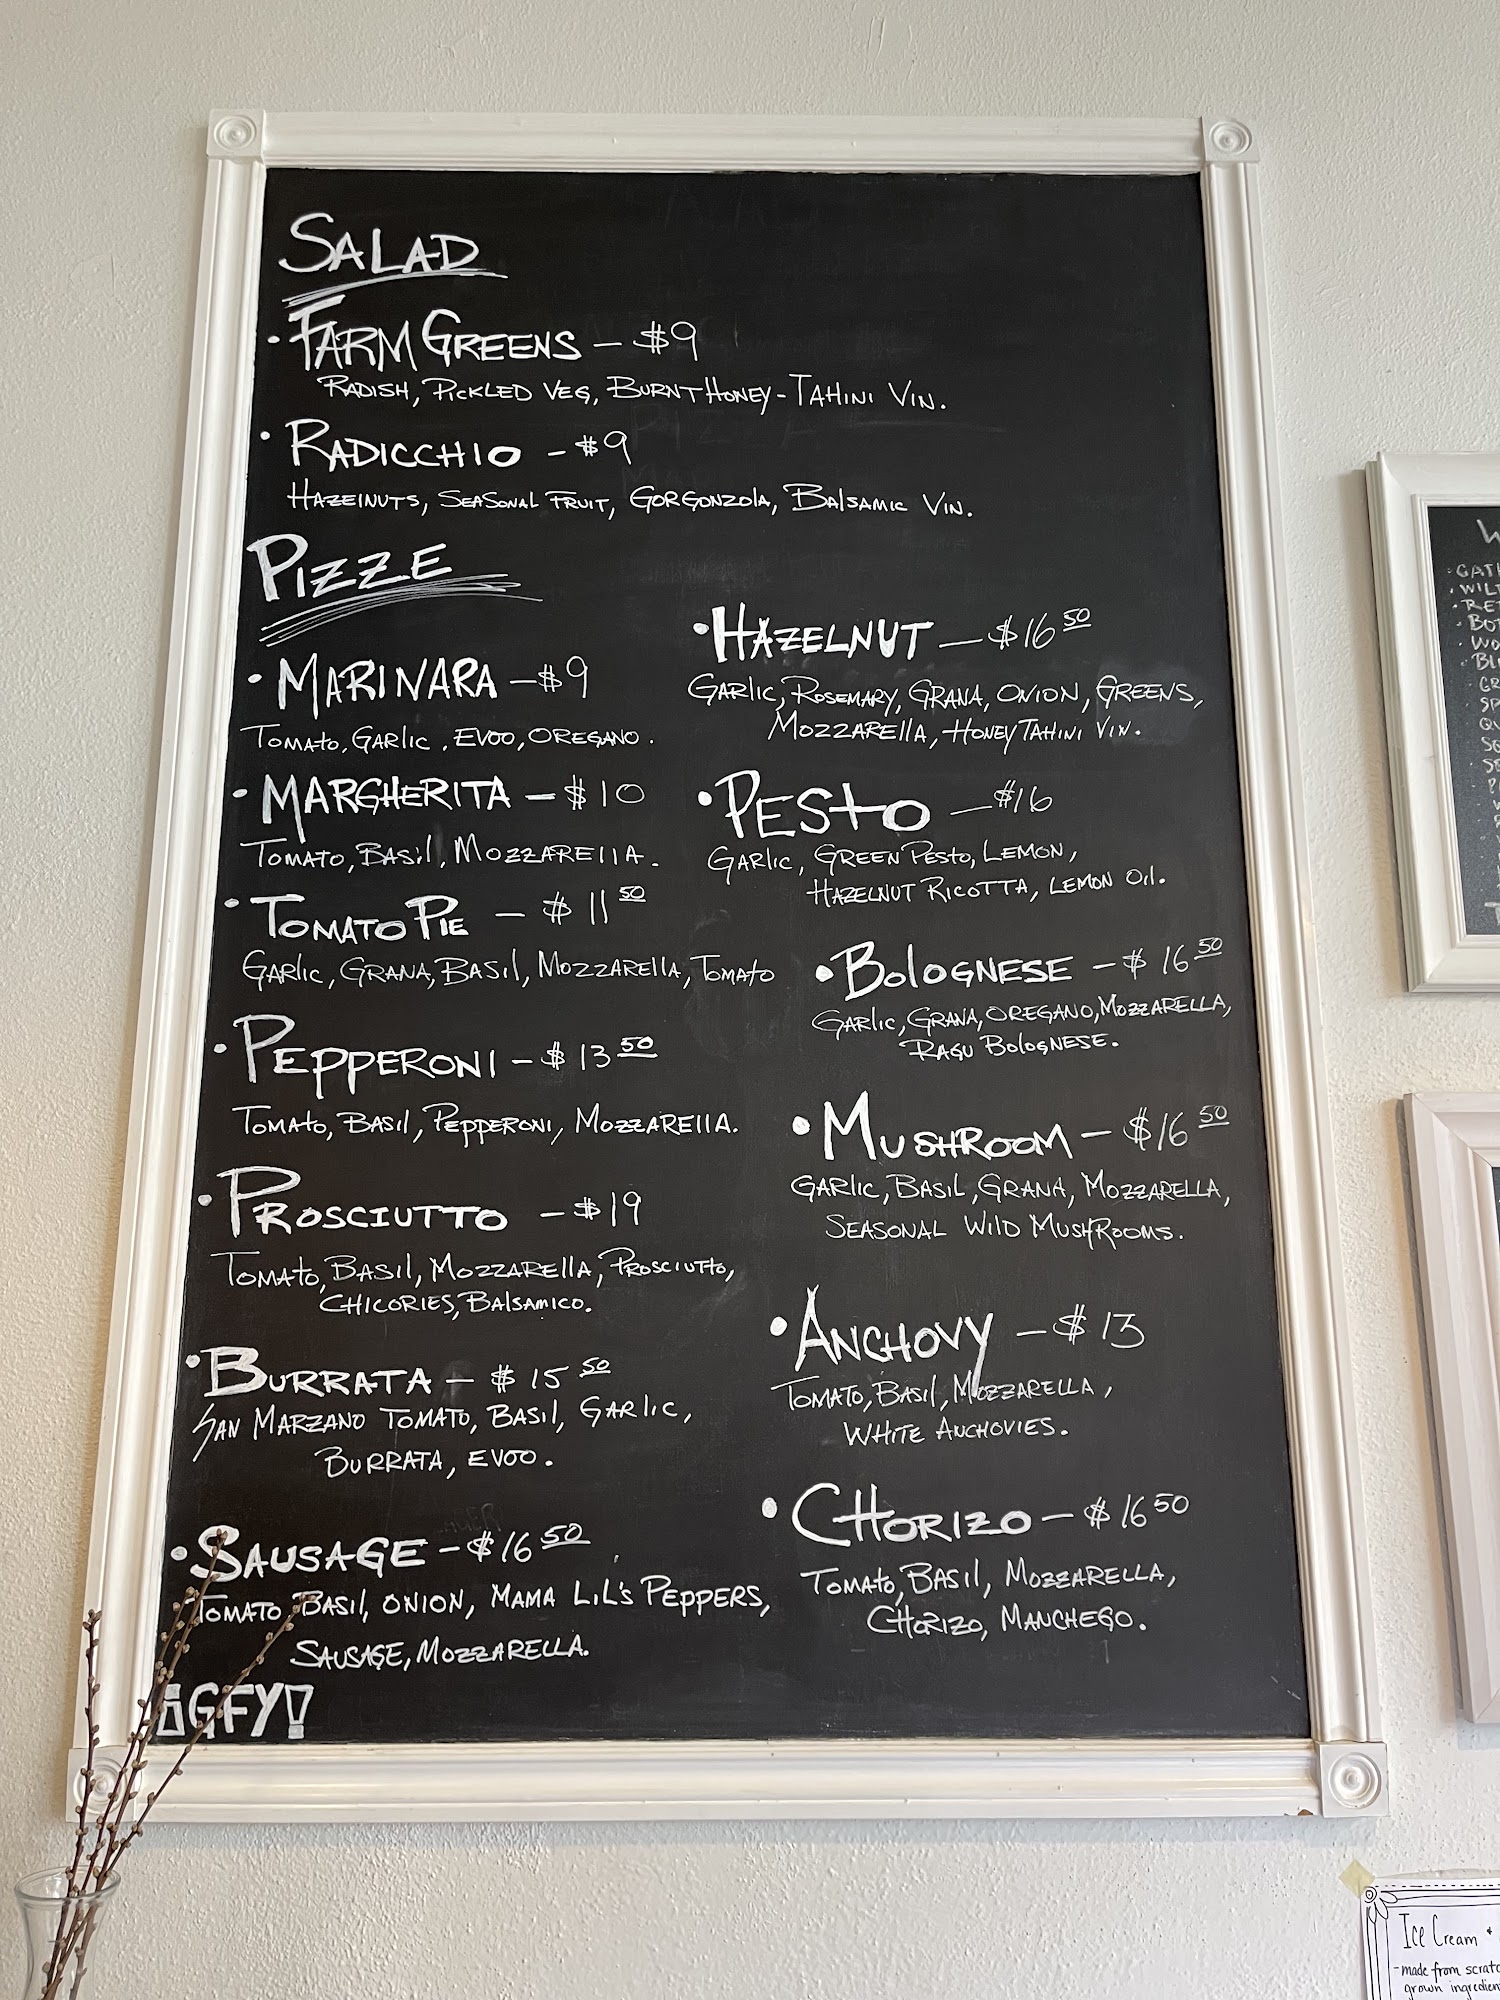 SALAD
• FARM GREENS — $9
RADISH, PICKLED VEG, BURNT HONEY-TAHINI VIN.
• RADICCHIO - $9
HAZELNUTS, SEASONAL FRUIT, GORGONZOLA, BALSAMIC VIN.
PIZZE
• MARINARA — $9
TOMATO, GARLIC, EVOO, OREGANO.
• MARGHERITA — $10
TOMATO, BASIL, MOZZARELLA.
• TOMATO PIE — $11 50
GARLIC, GRANA, BASIL, MOZZARELLA, TOMATO
• PEPPERONI — $13 50
TOMATO, BASIL, PEPPERONI, MOZZARELLA.
• PROSCIUTTO — $19
TOMATO, BASIL, MOZZARELLA, PROSCIUTTO,
CHICORIES, BALSAMICO.
• BURRATA — $15 50
SAN MARZANO TOMATO, BASIL, GARLIC,
BURRATA, EVOO.
• SAUSAGE — $16 50
TOMATO BASIL, ONION, MAMA LIL'S PEPPERS,
SAUSAGE, MOZZARELLA.
¡GFY!
• HAZELNUT — $16 50
GARLIC, ROSEMARY, GRANA, ONION, GREENS,
MOZZARELLA, HONEY TAHINI VIN.
• PESTO — $16
GARLIC, GREEN PESTO, LEMON,
HAZELNUT RICOTTA, LEMON OIL.
• BOLOGNESE — $16 50
GARLIC, GRANA, OREGANO, MOZZARELLA,
RAGU BOLOGNESE.
• MUSHROOM — $16 50
GARLIC, BASIL, GRANA, MOZZARELLA,
SEASONAL WILD MUSHROOMS.
• ANCHOVY — $13
TOMATO, BASIL, MOZZARELLA,
WHITE ANCHOVIES.
• CHORIZO — $16 50
TOMATO, BASIL, MOZZARELLA,
CHORIZO, MANCHEGO.
Ice Cream
- made from scratc
grown ingredien